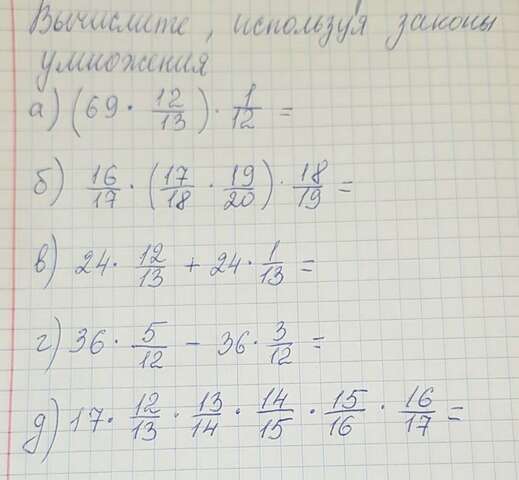 Вычислите, используя законы
умножения
а) (69 · 12/13) · 1/12 =
б) 16/17 · (17/18 · 19/20) · 18/19 =
в) 24 · 12/13 + 24 · 1/13 =
г) 36 · 5/12 − 36 · 3/12 =
д) 17 · 12/13 · 13/14 · 14/15 · 15/16 · 16/17 =